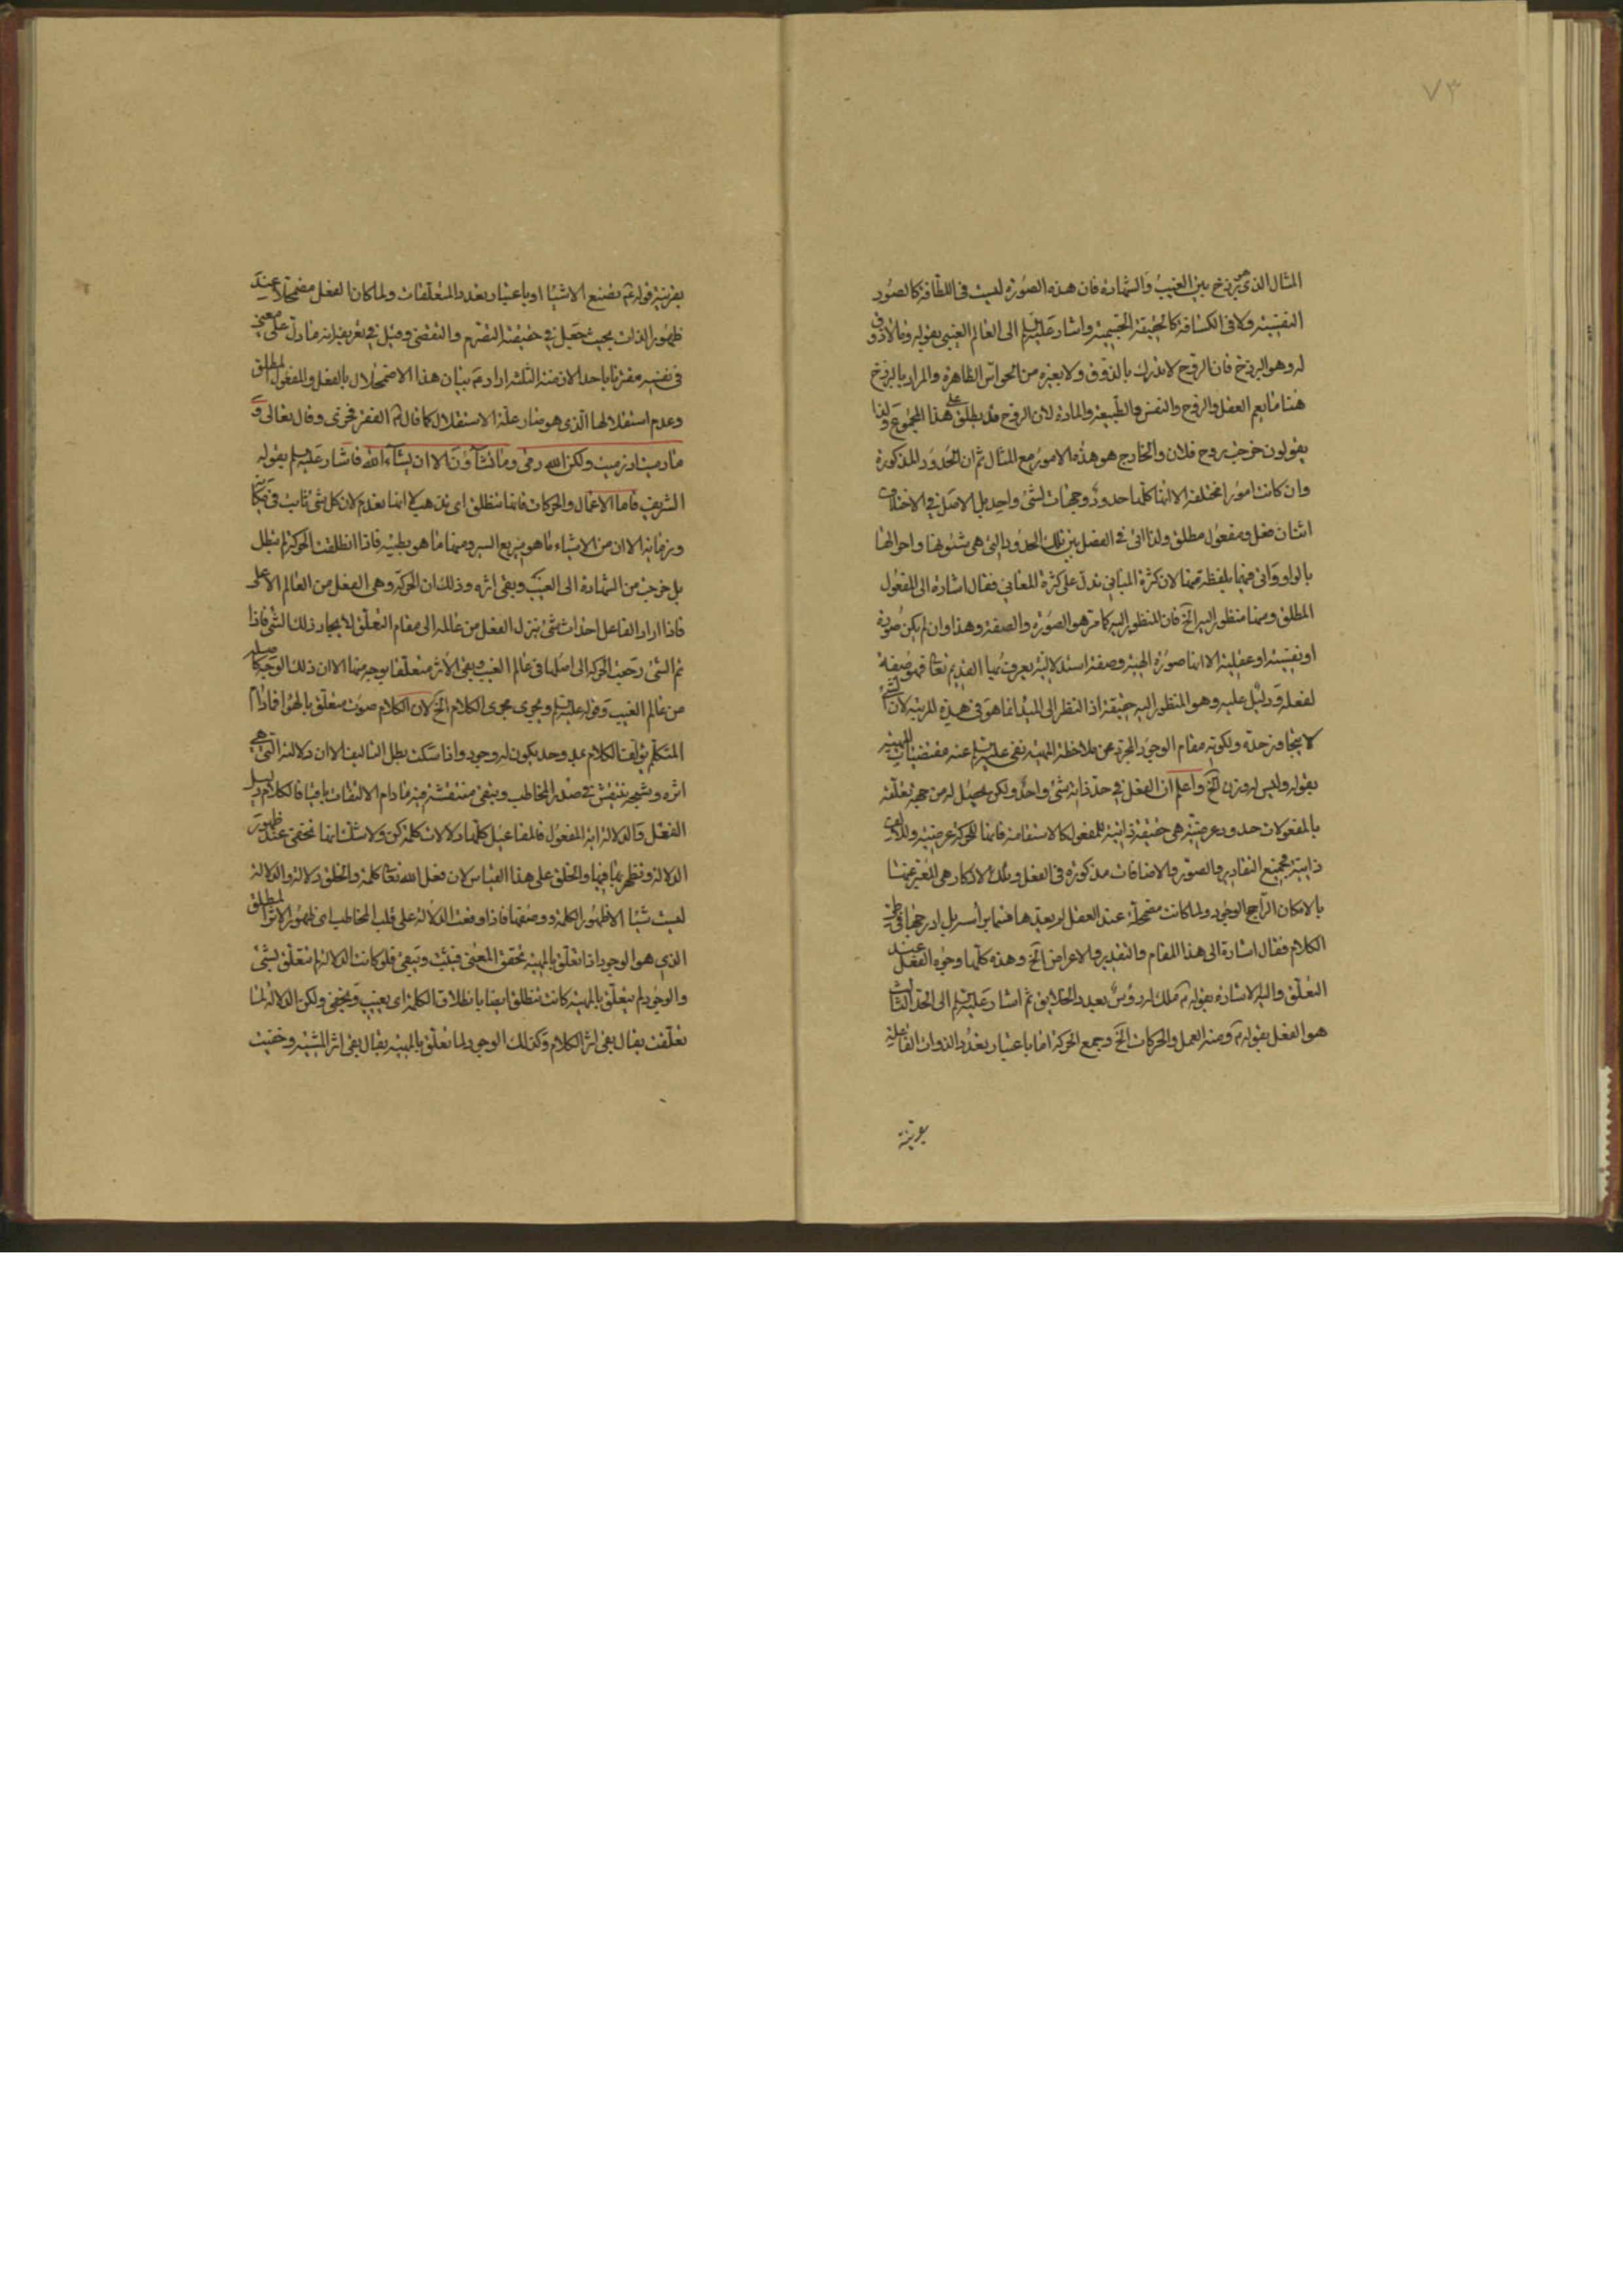 ٧٣
المثال الذى هو برزخ بين الغيب والشهادة فان هذه الصورة ليست فى اللطافة كالصور
النفسية ولا فى الكثافة كالحقيقة الجسمية واشار عليه السلم الى العالم الغيبى بقوله وما لا ذوق
له وهو البرزخ فان الروح لا تدرك بالذوق ولا بغيره من الحواس الظاهرة والمراد بالبرزخ
هنا ما يعم العقل والروح والنفس والطبيعة والمادة لان الروح قد يطلق على هذا المجموع ولذا
يقولون خرجت روح فلان والخارج هو هذه الامور مع المثال ثم ان الحدود المذكورة
وان كانت امورا مختلفة الا انها كلها حدود وجهات لشئ واحد بل الاصل فى الاختلاف
اثنان فعل ومفعول مطلق ولذا اتى فى الفصل بين تلك الحدود التى هى شئونها واحوالها
بالواو واتى فيهما بلفظة منها لان كثرة المبانى تدل على كثرة المعانى فقال اشارة الى المفعول
المطلق ومنها منظور اليه الخ فان المنظور اليه كما مر هو الصورة والصفة وهذا وان لم يكن صورة
او نفسية او عقلية الا انها صورة الهية وصفة استدلالية يعرف بها القديم تعا فهو صفة
لفعله ودليل عليه وهو المنظور اليه حقيقة اذ النظر الى المبدء انما هو فى هذه المرتبة لان الشئ
لا يتجاوز حده ولكونه مقام الوجود المجرد عن ملاحظة المهية نفى عليه السلم عنه مقتضيات المهية
بقوله وليس له وزن الخ واعلم ان الفعل فى حد ذاته شئ واحد ولكن يحصل له من جهة تعلقه
بالمفعولات حدود عرضية هى حقيقة ذاتية للمفعول كالاستقامة فانها للحركة عرضية وللالف
ذاتية فجميع التقادير والصور والاضافات مذكورة فى الفعل وتلك الاذكار هى المعبر عنها
بالامكان الراجح الوجود ولما كانت مضمحلة عند العقل لم يعدها قسما براسه بل ادرجها فى طى
الكلام فقال اشارة الى هذا المقام والتقدير والاعراض الخ وهذه كلها وجوه الفعل عند
التعلق واليه الاشارة بقوله ملك له رؤس بعدد الخلايق ثم اشار عليه السلم الى الحد الثالث
هو الفعل بقوله ومنه العمل والحركات الخ وجمع الحركة اما باعتبار تعدد الذوات الفاعلية
بقرينة
بقرينة قوله تصنع الاشيا او باعتبار تعدد المتعلقات ولما كان الفعل مضمحلا عند
ظهور الذات بحيث جعل فى حقيقته التصرم والتقضى وقيل فى تعريفه انه ما دل على معنى
فى نفسه مقترنا باحد الازمنة الثلثة اراد بيان هذا الاضمحلال بالفعل والمفعول المطلق
وعدم استقلالها الذى هو صار علة الاستقلال كما قال الفقر فخرى وقال تعالى و
ما رميت اذ رميت ولكن الله رمى وما تشاؤن الا ان يشآء الله فاشار عليه السلم بقوله
الشريف فاما الاعمال والحركات فانها تنطلق اى تذهب لا انها تعدم لان كل شئ ثابت فى مكانه
وزمانه الا ان من الاشياء ما هو سريع السير ومنها ما هو بطيئه فاذا انطلقت الحركة لم تبطل
بل خرجت من الشهادة الى الغيب وبقى اثره وذلك ان الحركة وهى الفعل من العالم الاعلى
فاذا اراد الفاعل احداث شئ نزل الفعل من عالمه الى مقام التعلق لايجاد ذلك الشئ فاذا
تم الشئ رجعت الحركة الى اصلها فى عالم الغيب وبقى الاثر متعلقا بوجه منها الا ان ذلك الوجه
من عالم الغيب وقوله عليه السلم ويجرى مجرى الكلام الخ لان الكلام صوت متعلق بالهوا فمادام
المتكلم يؤلف الكلام يكون له وجود واذا سكت بطل التاليف الا ان دلالته التى هى
اثره وشبحه تنتقش فى صدر المخاطب وتبقى منتقشة فيه مادام الالتفات باقيا فالكلام دليل
الفعل والدلالة اية المفعول فالمفاعيل كلها دلالات كلمة كن ولا شك انها تختفى عند ظهور
الدلالة وتظهر بها فيها والخلق على هذا القياس لان فعل الله تعا كلمة والخلق دلالة والدلالة
ليست شيئا الا ظهور الكلمة ووصفها فاذا وقعت الدلالة على قلب المخاطب اى ظهور الاثر المطلق
الذى هو الوجود اذا تعلق بالمهية تحقق المعنى فيثبت ويبقى فلو كانت الدلالة لم تتعلق بشئ
والوجود لم يتعلق بالمهية كانت تنطلق ايضا بانطلاق الكلمة اى يغيب ويختفى ولكن الدلالة لما
تعلقت يقال بقى اثر الكلام وكذلك الوجود لما تعلق بالمهية يقال بقى اثر المشية وخفيت